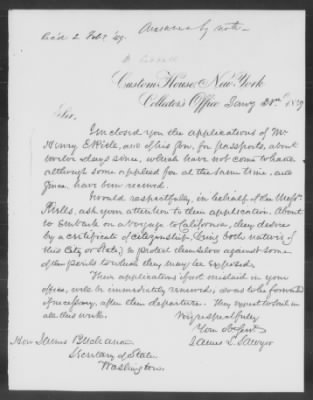 Rec'd 2 Feb. '49. Answered by note
Custom House, New York
Collector's Office Jany 31st 1849
Sir,
I inclosed you the applications of Mr
Henry and of his son, for passports, about
twelve days since, which have not come to hand
although some applied for at the same time, and
since, have been received.
I would respectfully, in behalf of the Messrs
ask your attention to their application. About
to embark on a voyage to California, they desire
by a certificate of citizenship, (being both natives of
this City or State,) to protect themselves against some
of the perils to which they may be exposed.
Their applications if not mislaid in your
office, will be immediately received, so as to be forwarded
if necessary, after their departure. They expect to sail in
all this week.
Very respectfully
Your Ob. Servt.
James L. Sawyer
Hon James Buchanan
Secretary of State
Washington.